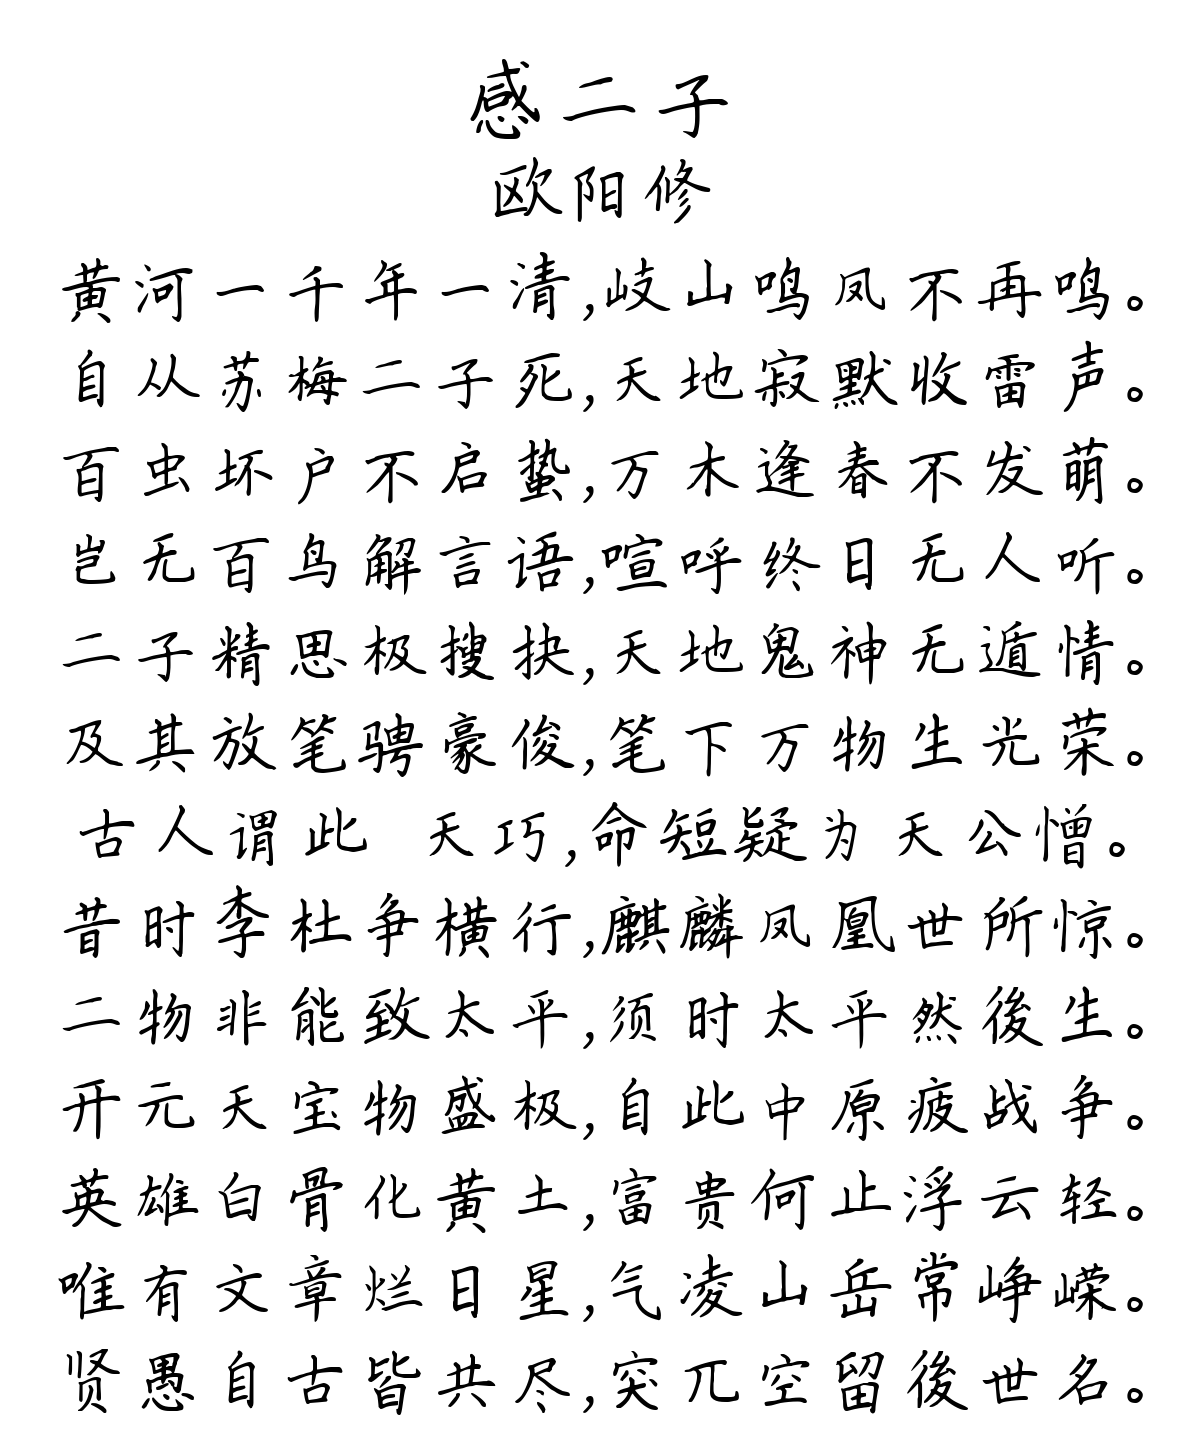 感二子
欧阳修
黄河一千年一清,岐山鸣凤不再鸣。
自从苏梅二子死,天地寂默收雷声。
百虫坏户不启蛰,万木逢春不发萌。
岂无百鸟解言语,喧呼终日无人听。
二子精思极搜抉,天地鬼神无遁情。
及其放笔骋豪俊,笔下万物生光荣。
古人谓此 天巧,命短疑为天公憎。
昔时李杜争横行,麒麟凤凰世所惊。
二物非能致太平,须时太平然後生。
开元天宝物盛极,自此中原疲战争。
英雄白骨化黄土,富贵何止浮云轻。
唯有文章烂日星,气凌山岳常峥嵘。
贤愚自古皆共尽,突兀空留後世名。